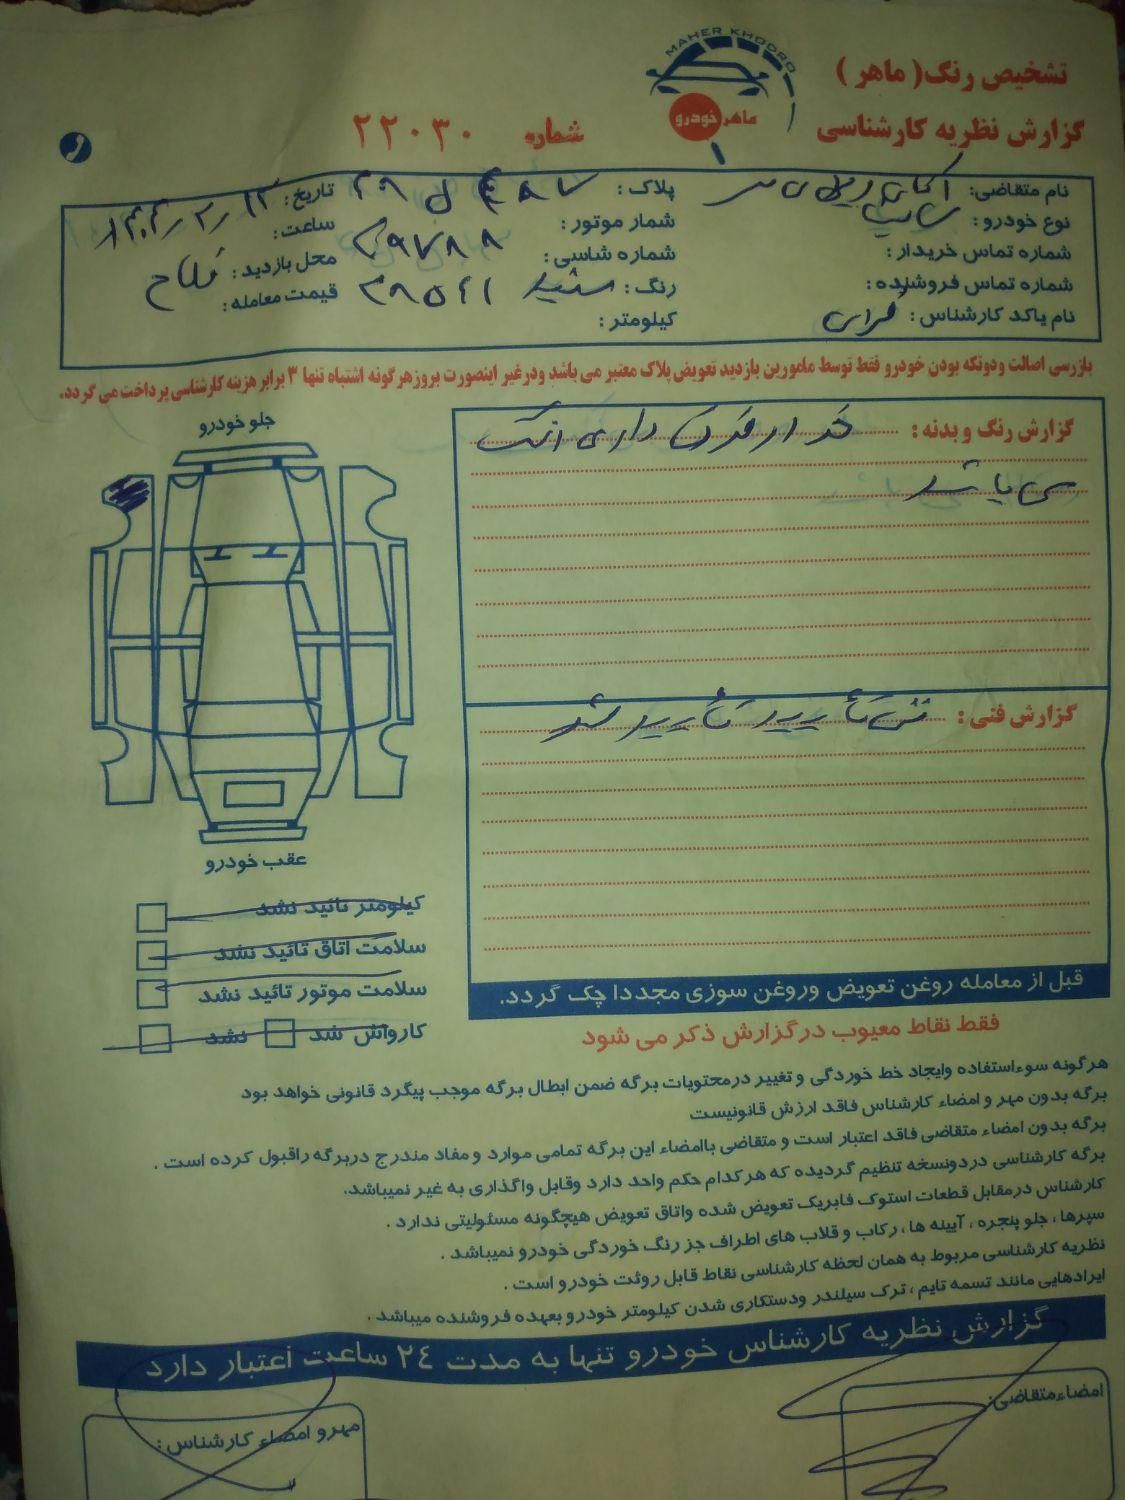 MAHER KHODRO
ماهر خودرو
تشخیص رنگ ( ماهر )
گزارش نظریه کارشناسی
شماره ۲۲۰۳۰
نام متقاضی: آقای
نوع خودرو: سایپا
شماره تماس خریدار:
شماره تماس فروشنده:
نام یاکد کارشناس:
پلاک:
شمار موتور:
شماره شاسی:
رنگ: سفید
کیلومتر:
تاریخ:
ساعت:
محل بازدید: فلاح
قیمت معامله:
بازرسی اصالت ودوتکه بودن خودرو فقط توسط مامورین بازدید تعویض پلاک معتبر می باشد ودرغیر اینصورت بروزهرگونه اشتباه تنها ۳ برابر هزینه کارشناسی پرداخت می گردد.
جلو خودرو
عقب خودرو
گزارش رنگ و بدنه:
می باشد
گزارش فنی: شد
کیلومتر تائید نشد
سلامت اتاق تائید نشد
سلامت موتور تائید نشد
کارواش شد نشد
قبل از معامله روغن تعویض وروغن سوزی مجددا چک گردد.
فقط نقاط معیوب درگزارش ذکر می شود
هرگونه سوءاستفاده وایجاد خط خوردگی و تغییر درمحتویات برگه ضمن ابطال برگه موجب پیگرد قانونی خواهد بود
برگه بدون مهر و امضاء کارشناس فاقد ارزش قانونیست
برگه بدون امضاء متقاضی فاقد اعتبار است و متقاضی باامضاء این برگه تمامی موارد و مفاد مندرج دربرگه راقبول کرده است .
برگه کارشناسی دردونسخه تنظیم گردیده که هرکدام حکم واحد دارد وقابل واگذاری به غیر نمیباشد.
کارشناس درمقابل قطعات استوک فابریک تعویض شده واتاق تعویض هیچگونه مسئولیتی ندارد .
سپرها ، جلو پنجره ، آیینه ها ، رکاب و قلاب های اطراف جز رنگ خوردگی خودرو نمیباشد .
نظریه کارشناسی مربوط به همان لحظه کارشناسی نقاط قابل روئت خودرو است .
ایرادهایی مانند تسمه تایم ، ترک سیلندر ودستکاری شدن کیلومتر خودرو بعهده فروشنده میباشد .
گزارش نظریه کارشناس خودرو تنها به مدت ۲۴ ساعت اعتبار دارد
امضاءمتقاضی:
مهرو امضاء کارشناس: